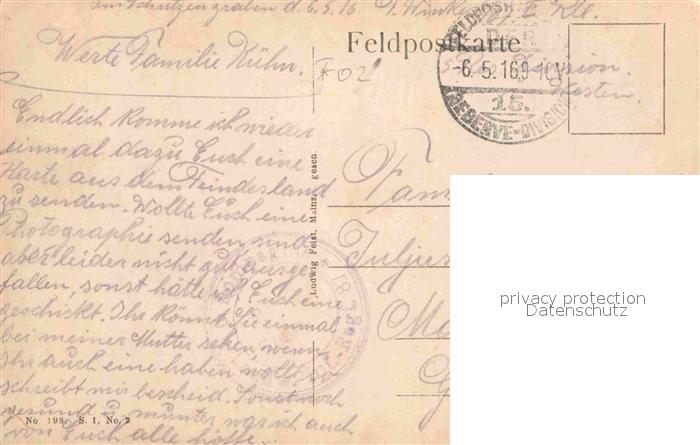 Im Schützengraben d. 6.5.16
Feldpostkarte
Werte Familie Kühn.
FELDPOST
-6.5.16.9-10V
15.
RESERVE-DIVISION
Division.
Westen.
Endlich komme ich wieder
einmal dazu Euch eine
Karte aus dem Feindesland
zu senden. Wollte Euch eine
Photographie senden, sind
aber leider nicht gut ausge-
fallen, sonst hätte ich Euch eine
geschickt. Ihr könnt Sie einmal
bei meiner Mutter sehen, wenn
Ihr auch eine haben wollt so
schreibt mir bescheid. Sonst noch
gesund u. munter was ich auch
von Euch alle hoffe.
Ludwig Feist, Mainz, gesch.
No 198. S. 1, No. 2
Fam
privacy protection
Datenschutz